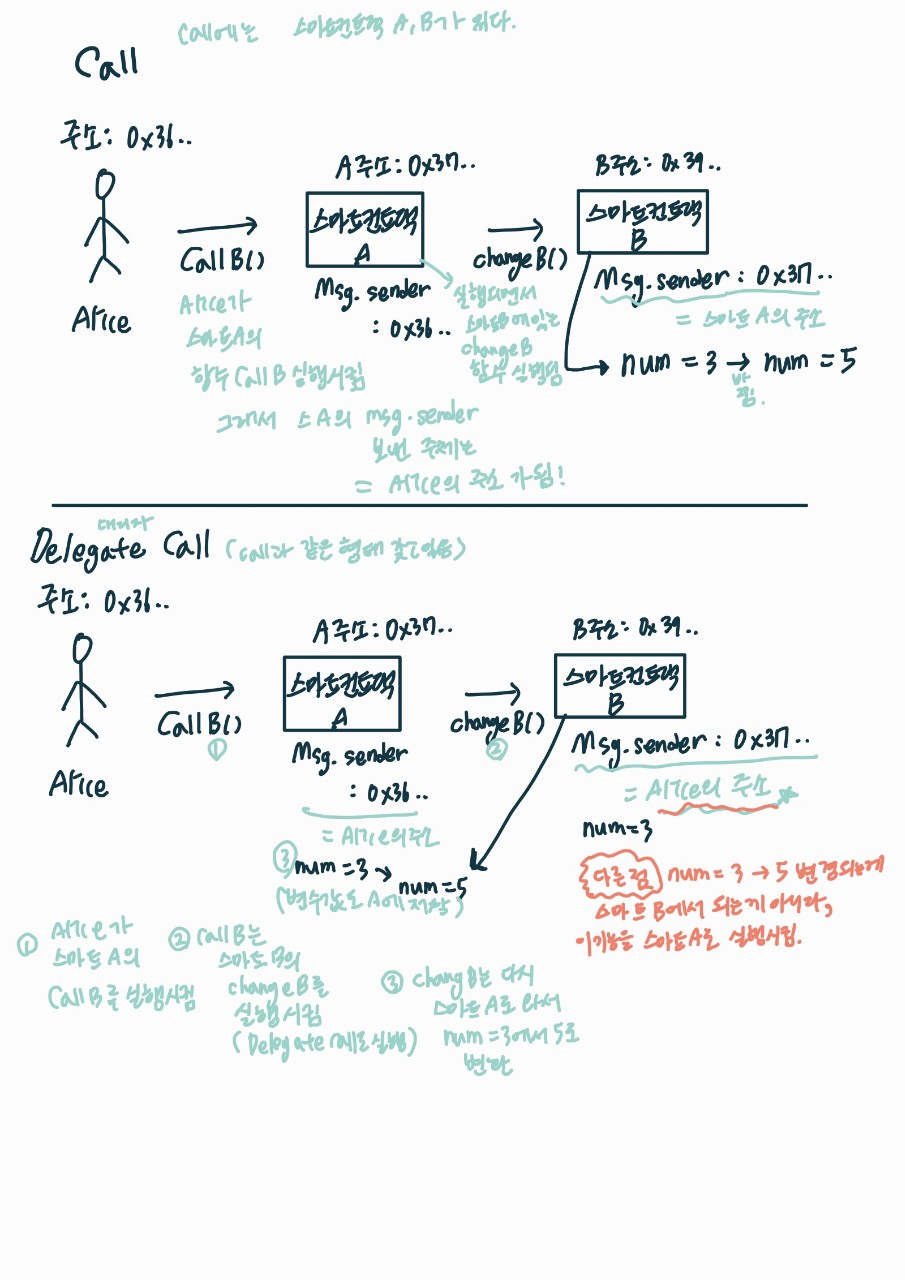 Call에는 스마트컨트랙 A, B가 있다.
Call
주소: 0x36..
A 주소: 0x37..
B주소: 0x39..
스마트컨트랙
A
스마트컨트랙
B
Call B()
change B()
Alice
Msg. sender
: 0x36..
Msg. sender : 0x37..
= 스마트 A의 주소
Alice가
스마트A의
함수 Call B 실행시킴
실행되면서
스마트B에 있는
change B
함수 실행됨
num = 3 → num = 5
바
뀜.
그래서 스A의 msg.sender
보낸 주체는
= Alice의 주소 가됨!
대리자
Delegate Call (call과 같은 형태 갖고있음)
주소: 0x36..
A 주소: 0x37..
B주소: 0x39..
스마트컨트랙
A
스마트컨트랙
B
Call B()
①
change B()
②
Alice
Msg. sender
: 0x36..
= Alice의 주소
Msg. sender : 0x37..
= Alice의 주소
③ num = 3 → num = 5
(변수값도 A에 저장)
num = 3
다른점 num = 3 → 5 변경되는게
스마트 B에서 되는게 아니라,
이기능을 스마트A로 실행시킴.
① Alice가
스마트 A의
Call B를 실행시킴
② Call B는
스마트 B의
change B를
실행시킴
(Delegate 실행)
③ chang B는 다시
스마트 A로 와서
num = 3에서 5로
변환